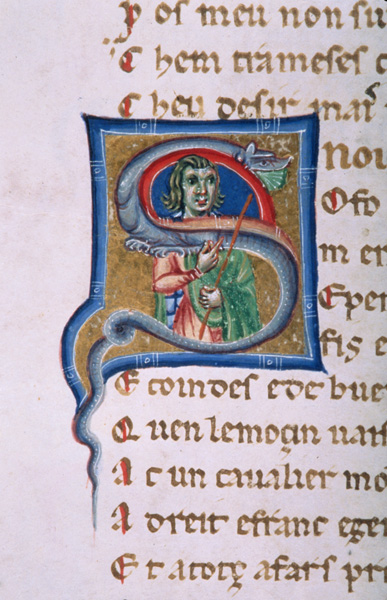 Pos meu non sui
Chem trameses c
Cheu desir mai
S
Nou
Ofo
m er
Eper
fis e
Ecoindes ede bue
Quen lemozin uait
Acun caualier mo
Adreit efranc egen
Et atotz afars pri